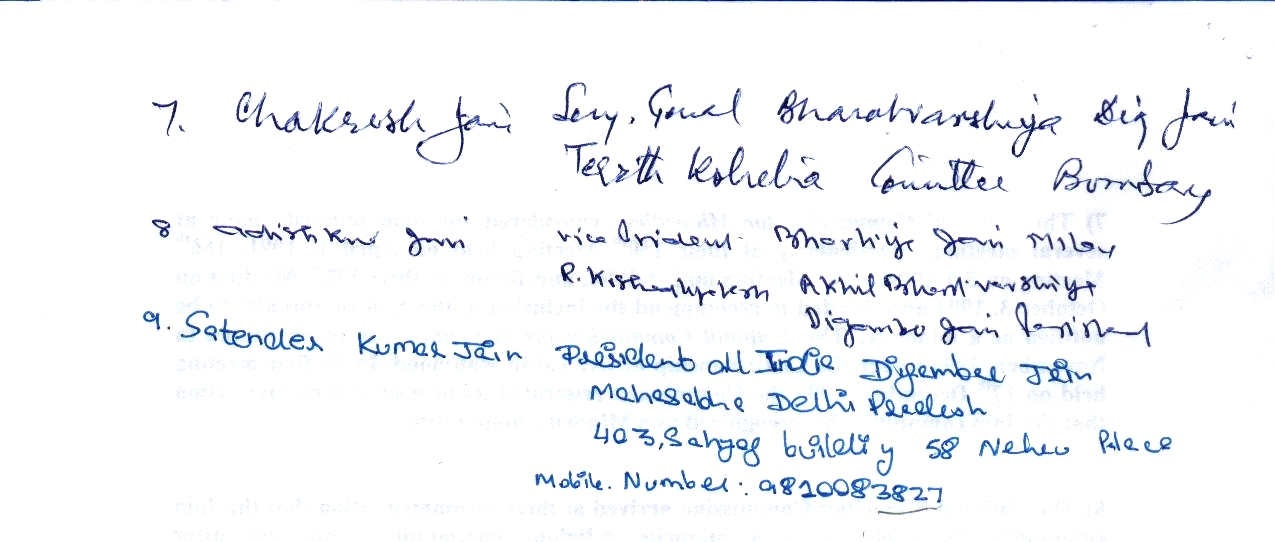 7. Chakresh Jain Secy. Genal Bharatvarshiya Dig Jain
Teerth Kshetra Committee Bombay
8 Jain vice President. Bhartiya Jain Milan
Akhil Bhartvarshiya
Digamber Jain Parishad
9. Satender Kumar Jain President all India Digamber Jain
Mahasabha Delhi Pradesh
403, Sahyog building 58 Nehru Place
Mobile. Number: 9810083827